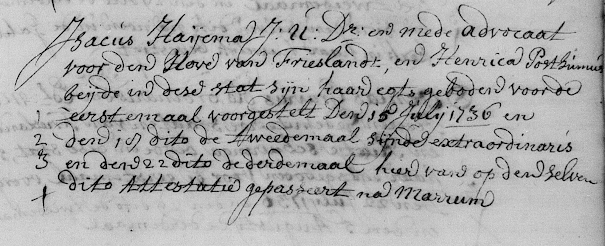 Isacus Haijema J: U: Dr: en mede advocaat
voor den Hove van Frieslandt, en Henrica Posthumus
beijde in dese stat sijn haar egts geboden voor de
1 eerstemaal voorgestelt Den 15 July 1736 en
2 den 18 dito de tweedemaal sijnde extraordinaris
3 en den 22 dito de derdemaal hier van op den selven
dito Attestatie gepasseert na Marrum